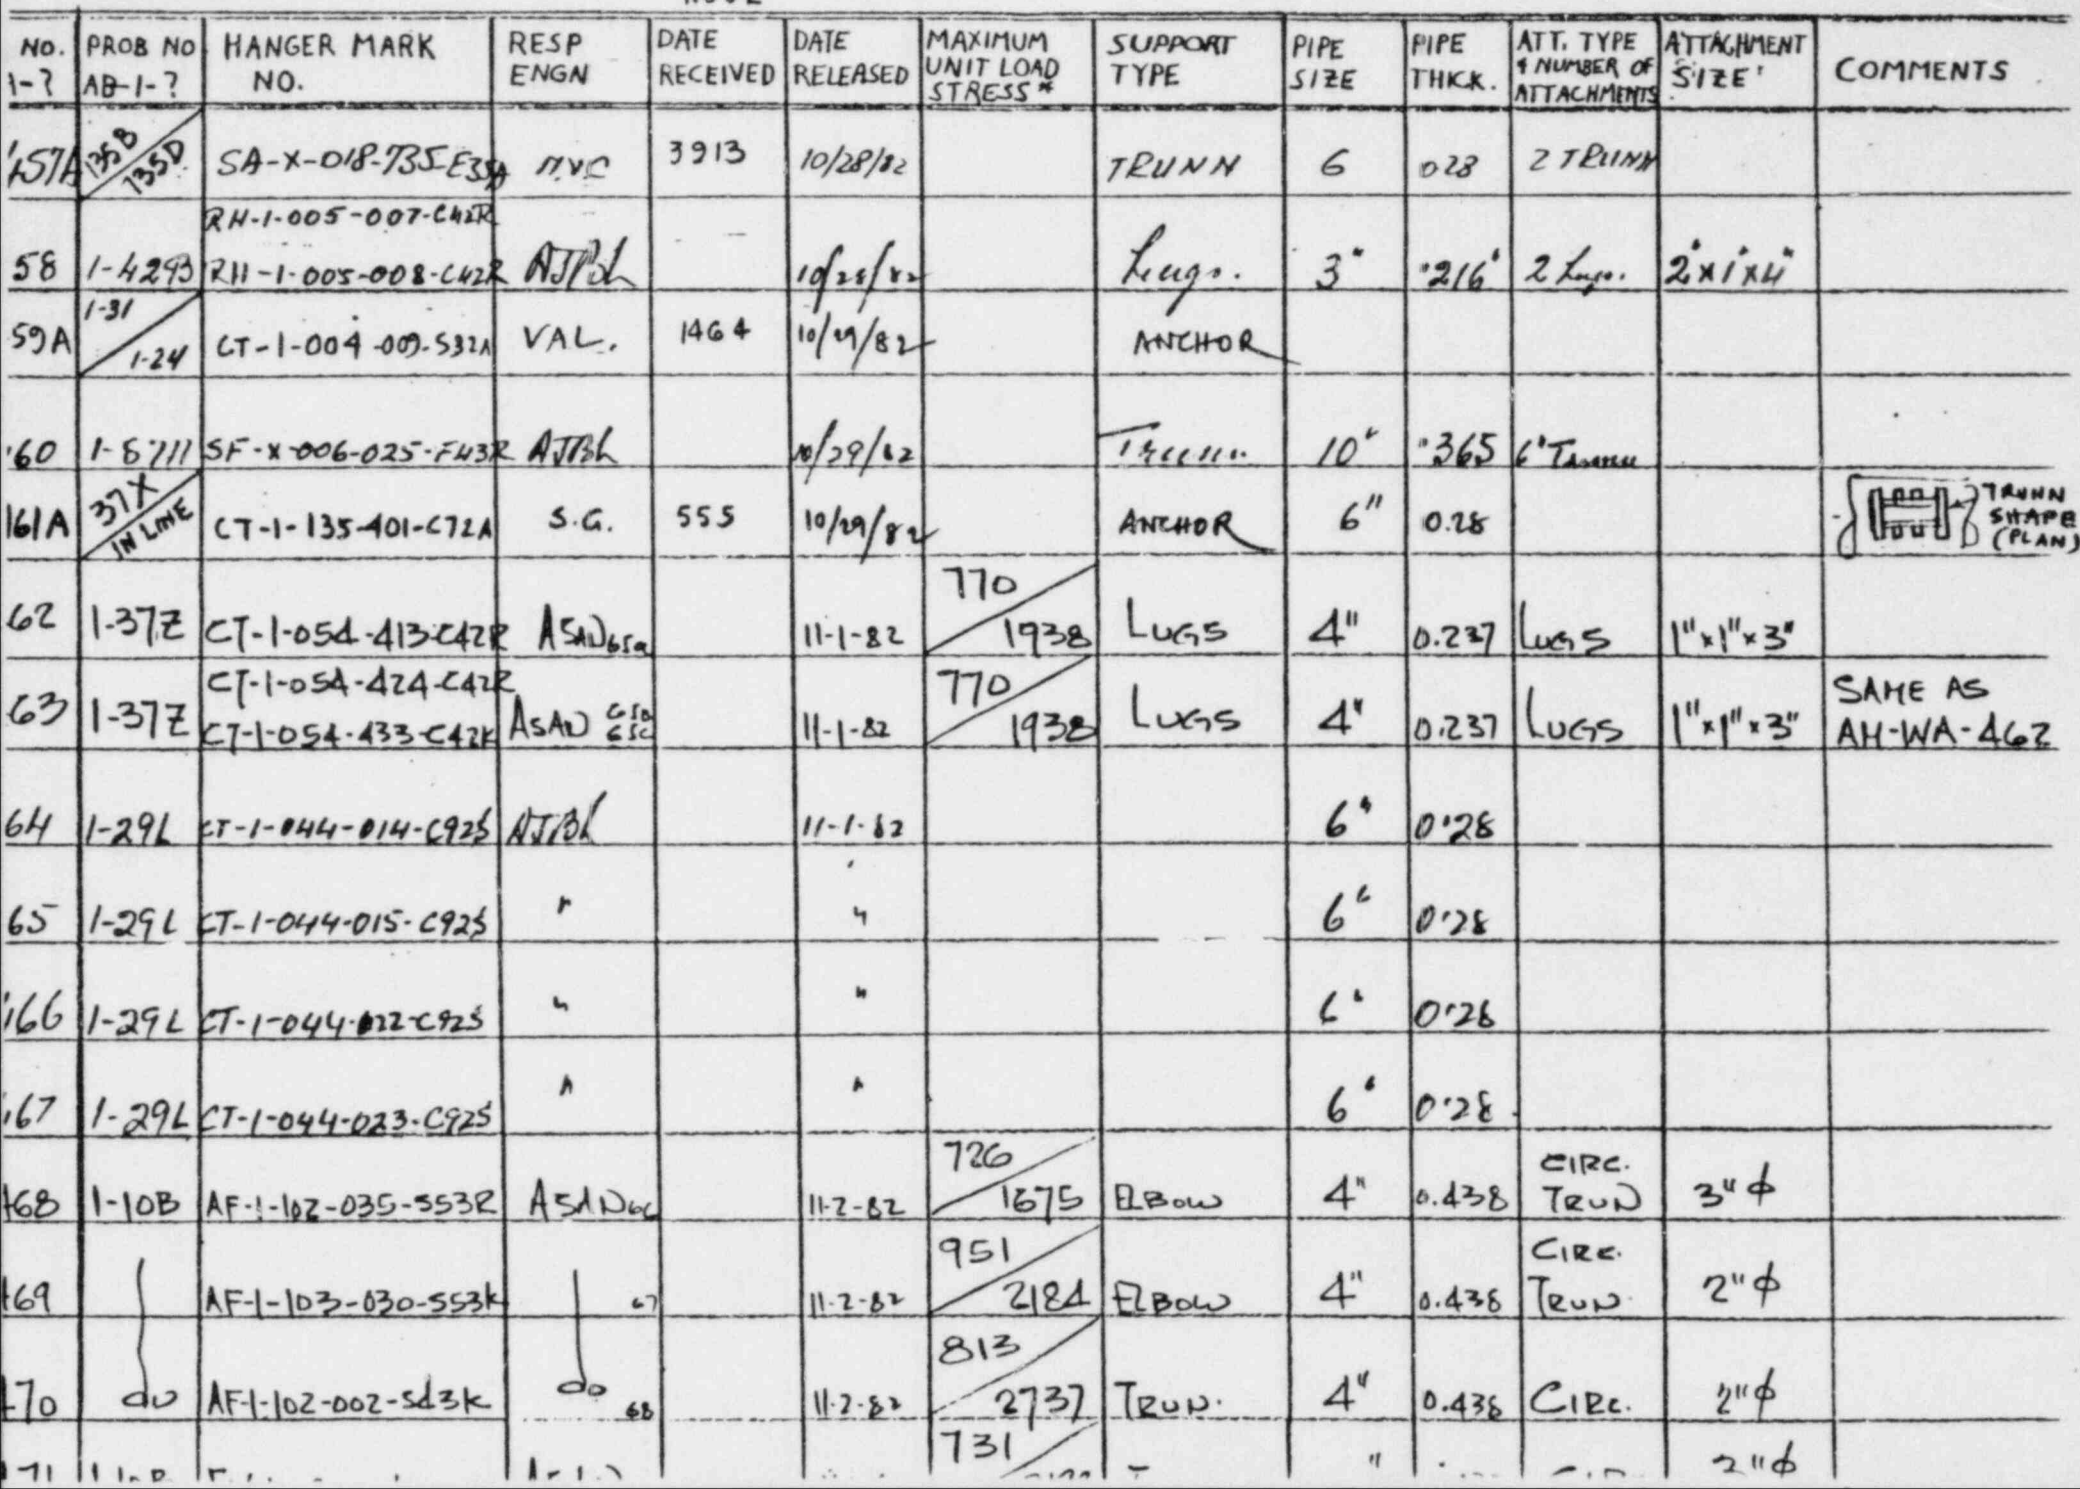 NO. 1-? PROB NO AB-1-? HANGER MARK NO. RESP ENGN DATE RECEIVED DATE RELEASED MAXIMUM UNIT LOAD STRESS* SUPPORT TYPE PIPE SIZE PIPE THCK. ATT. TYPE & NUMBER OF ATTACHMENTS ATTACHMENT SIZE COMMENTS
457A 135B / 135D SA-X-018-735-E35A 3913 10/28/82 TRUNN 6 028 2 TRUNN
RH-1-005-007-C42R
58 1-4293 RH-1-005-008-C42R AJBL 10/28/82 Lugs. 3" .216" 2 Lugs. 2"x1"x4"
59A 1-31 / 1-24 CT-1-004-009-S32A VAL. 1464 10/29/82 ANCHOR
60 SF-X-006-025-F43R AJBL 10/29/82 Trunn. 10" .365 6" Trunn
161A 37X / IN LINE CT-1-135-401-C72A S.G. 555 10/29/82 ANCHOR 6" 0.28 TRUNN SHAPE (PLAN)
62 1-37Z CT-1-054-413-C42R ASAD 65a 11-1-82 770 / 1938 LUGS 4" 0.237 LUGS 1"x1"x3"
CT-1-054-424-C42R
63 1-37Z CT-1-054-433-C42K ASAD 65b 65c 11-1-82 770 / 1938 LUGS 4" 0.237 LUGS 1"x1"x3" SAME AS AH-WA-462
64 1-29L CT-1-044-014-C92S AJBL 11-1-82 6" 0.28
65 1-29L CT-1-044-015-C92S " " 6" 0.28
166 1-29L CT-1-044-022-C92S " " 6" 0.28
67 1-29L CT-1-044-023-C92S " " 6" 0.28
468 1-10B AF-1-102-035-S53R ASAD 66 11-2-82 726 / 1675 ELBOW 4" 0.438 CIRC. TRUN 3"ϕ
469 AF-1-103-030-S53K 67 11-2-82 951 / 2184 ELBOW 4" 0.438 CIRC. TRUN. 2"ϕ
470 do AF-1-102-002-S43K do 68 11-2-82 813 / 2737 TRUN. 4" 0.438 CIRC. 2"ϕ
731 " 2"ϕ